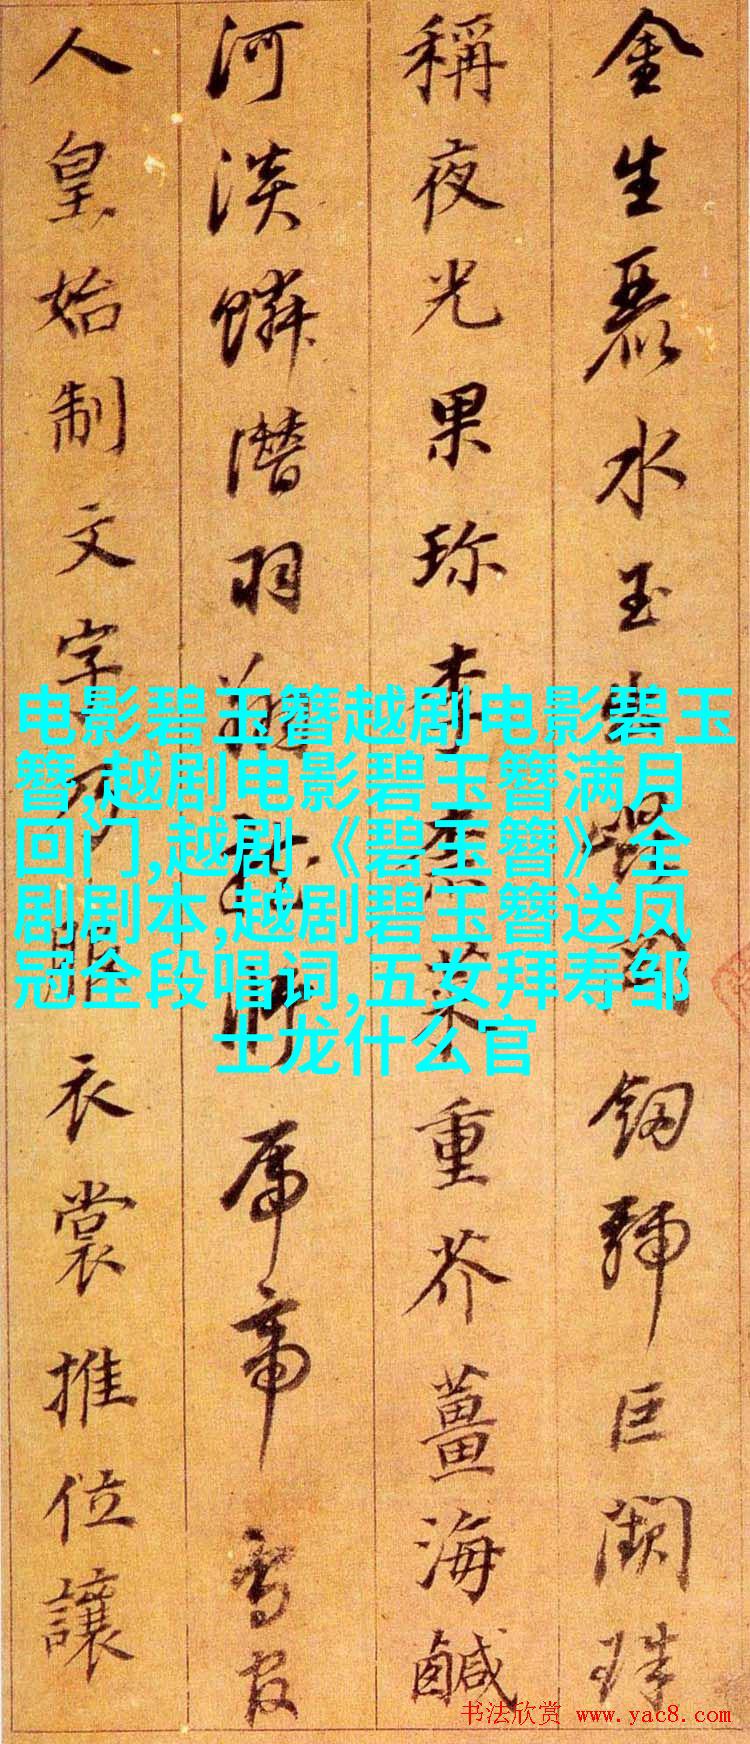 金生麗水玉出崑岡釼號巨闕珠
稱夜光果珍李柰菜重芥薑海鹹
河淡鱗潛羽翔龍師帝鳥官
人皇始制文字乃服衣裳推位讓
电影碧玉簪越剧电影碧玉
簪,越剧电影碧玉簪满月
回门,越剧《碧玉簪》全
剧剧本,越剧碧玉簪送凤
冠全段唱词,五女拜寿邹
士龙什么官
书法欣赏 www.yac8.com